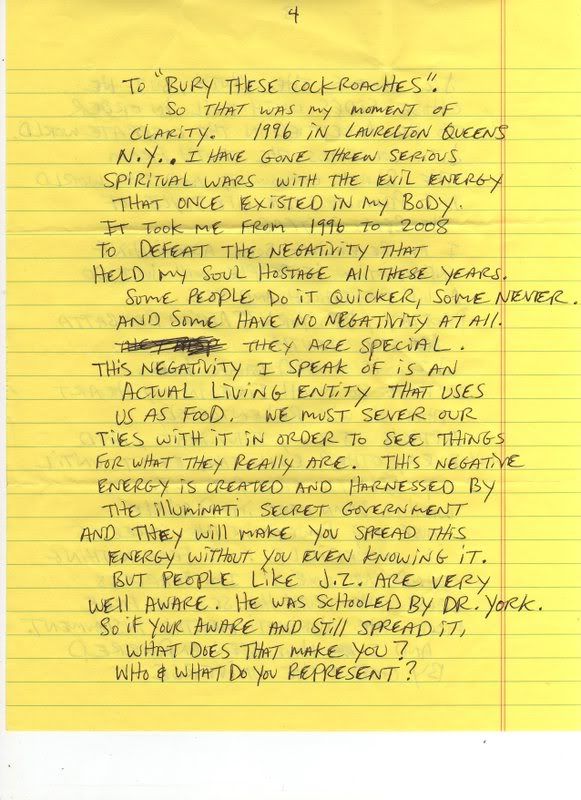 4
TO "BURY THESE COCKROACHES".
SO THAT WAS MY MOMENT OF
CLARITY. 1996 IN LAURELTON QUEENS
N.Y.. I HAVE GONE THREW SERIOUS
SPIRITUAL WARS WITH THE EVIL ENERGY
THAT ONCE EXISTED IN MY BODY.
IT TOOK ME FROM 1996 TO 2008
TO DEFEAT THE NEGATIVITY THAT
HELD MY SOUL HOSTAGE ALL THESE YEARS.
SOME PEOPLE DO IT QUICKER, SOME NEVER.
AND SOME HAVE NO NEGATIVITY AT ALL.
THEY ARE SPECIAL.
THIS NEGATIVITY I SPEAK OF IS AN
ACTUAL LIVING ENTITY THAT USES
US AS FOOD. WE MUST SEVER OUR
TIES WITH IT IN ORDER TO SEE THINGS
FOR WHAT THEY REALLY ARE. THIS NEGATIVE
ENERGY IS CREATED AND HARNESSED BY
THE ILLUMINATI SECRET GOVERNMENT
AND THEY WILL MAKE YOU SPREAD THIS
ENERGY WITHOUT YOU EVEN KNOWING IT.
BUT PEOPLE LIKE J.Z. ARE VERY
WELL AWARE. HE WAS SCHOOLED BY DR. YORK.
SO IF YOUR AWARE AND STILL SPREAD IT,
WHAT DOES THAT MAKE YOU?
WHO & WHAT DO YOU REPRESENT?